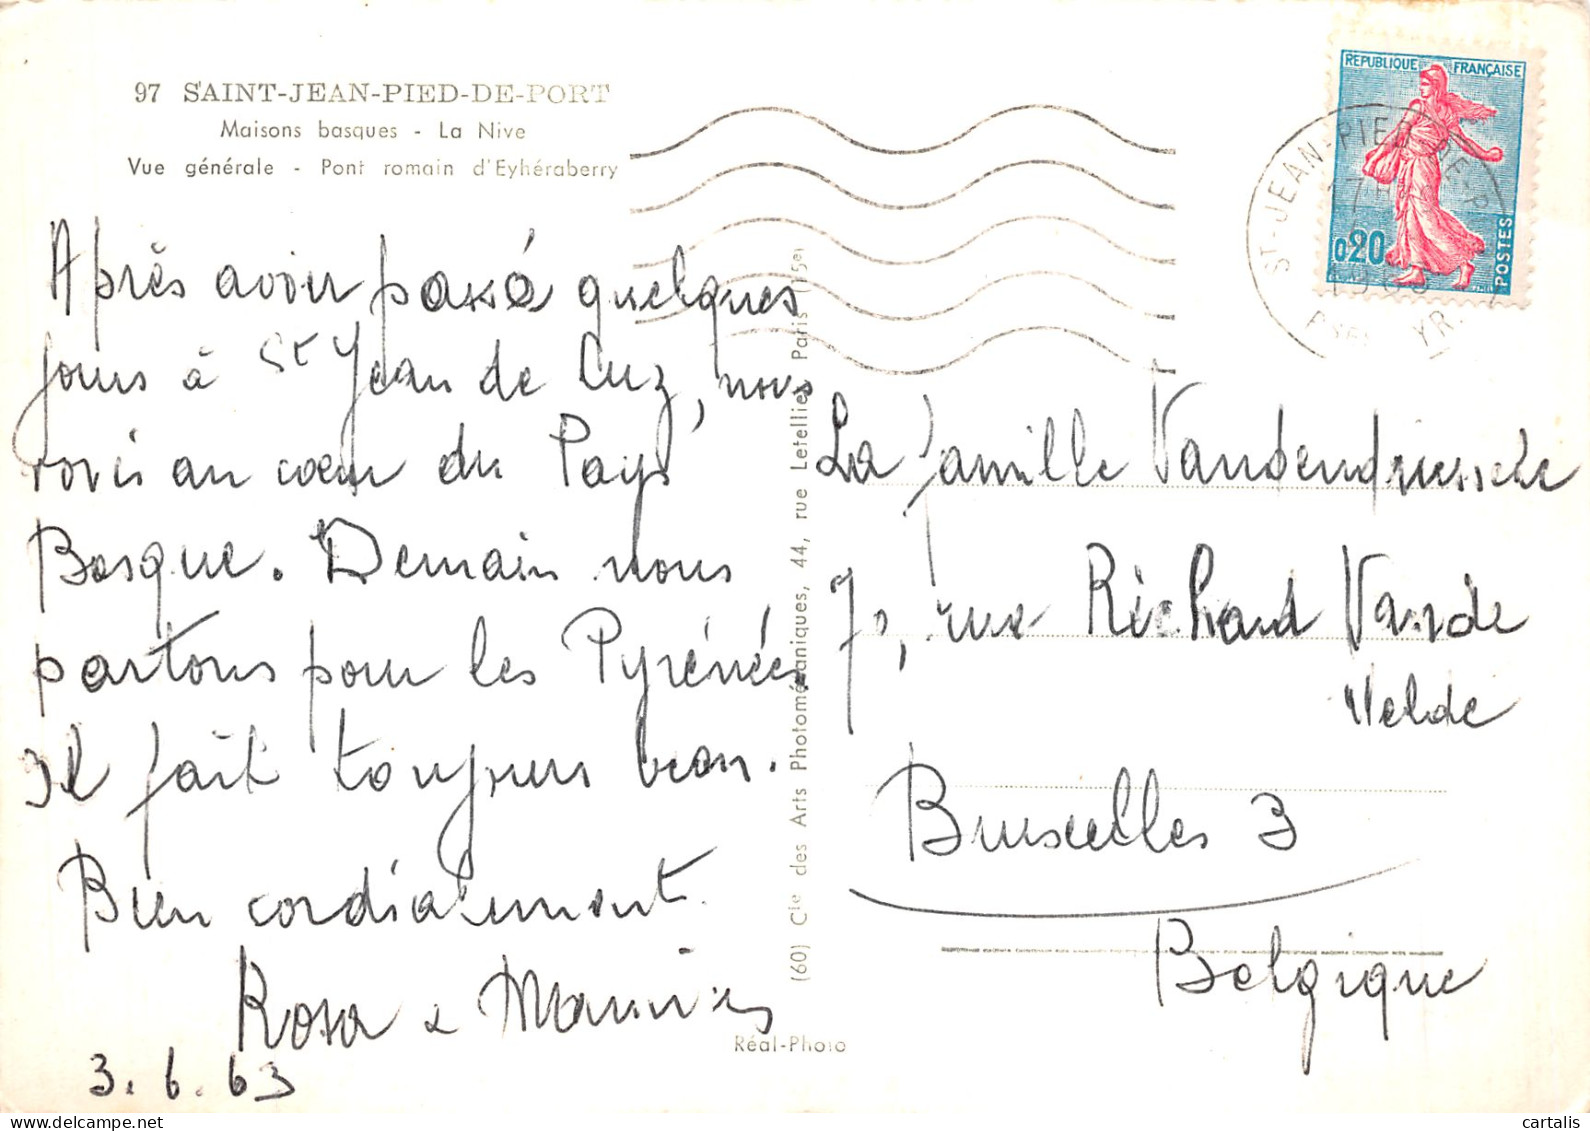 97 SAINT-JEAN-PIED-DE-PORT
Maisons basques - La Nive
Vue générale - Pont romain d'Eyhéraberry
Après avoir passé quelques
jours à St Jean de Luz, nous
voici au cœur du Pays
Basque. Demain nous
partons pour les Pyrénées
Il fait toujours beau.
Bien cordialement.
Rosa & Maurice
3.6.63
(60) Cie des Arts Photomécaniques, 44, rue Letellier, Paris (15e)
Réal-Photo
REPUBLIQUE FRANÇAISE
0,20
POSTES
ST-JEAN-PIED-DE-P
17H
La famille Vandendriessche
70, rue Richard Vande
Velde
Bruxelles 3
Belgique
cartalis